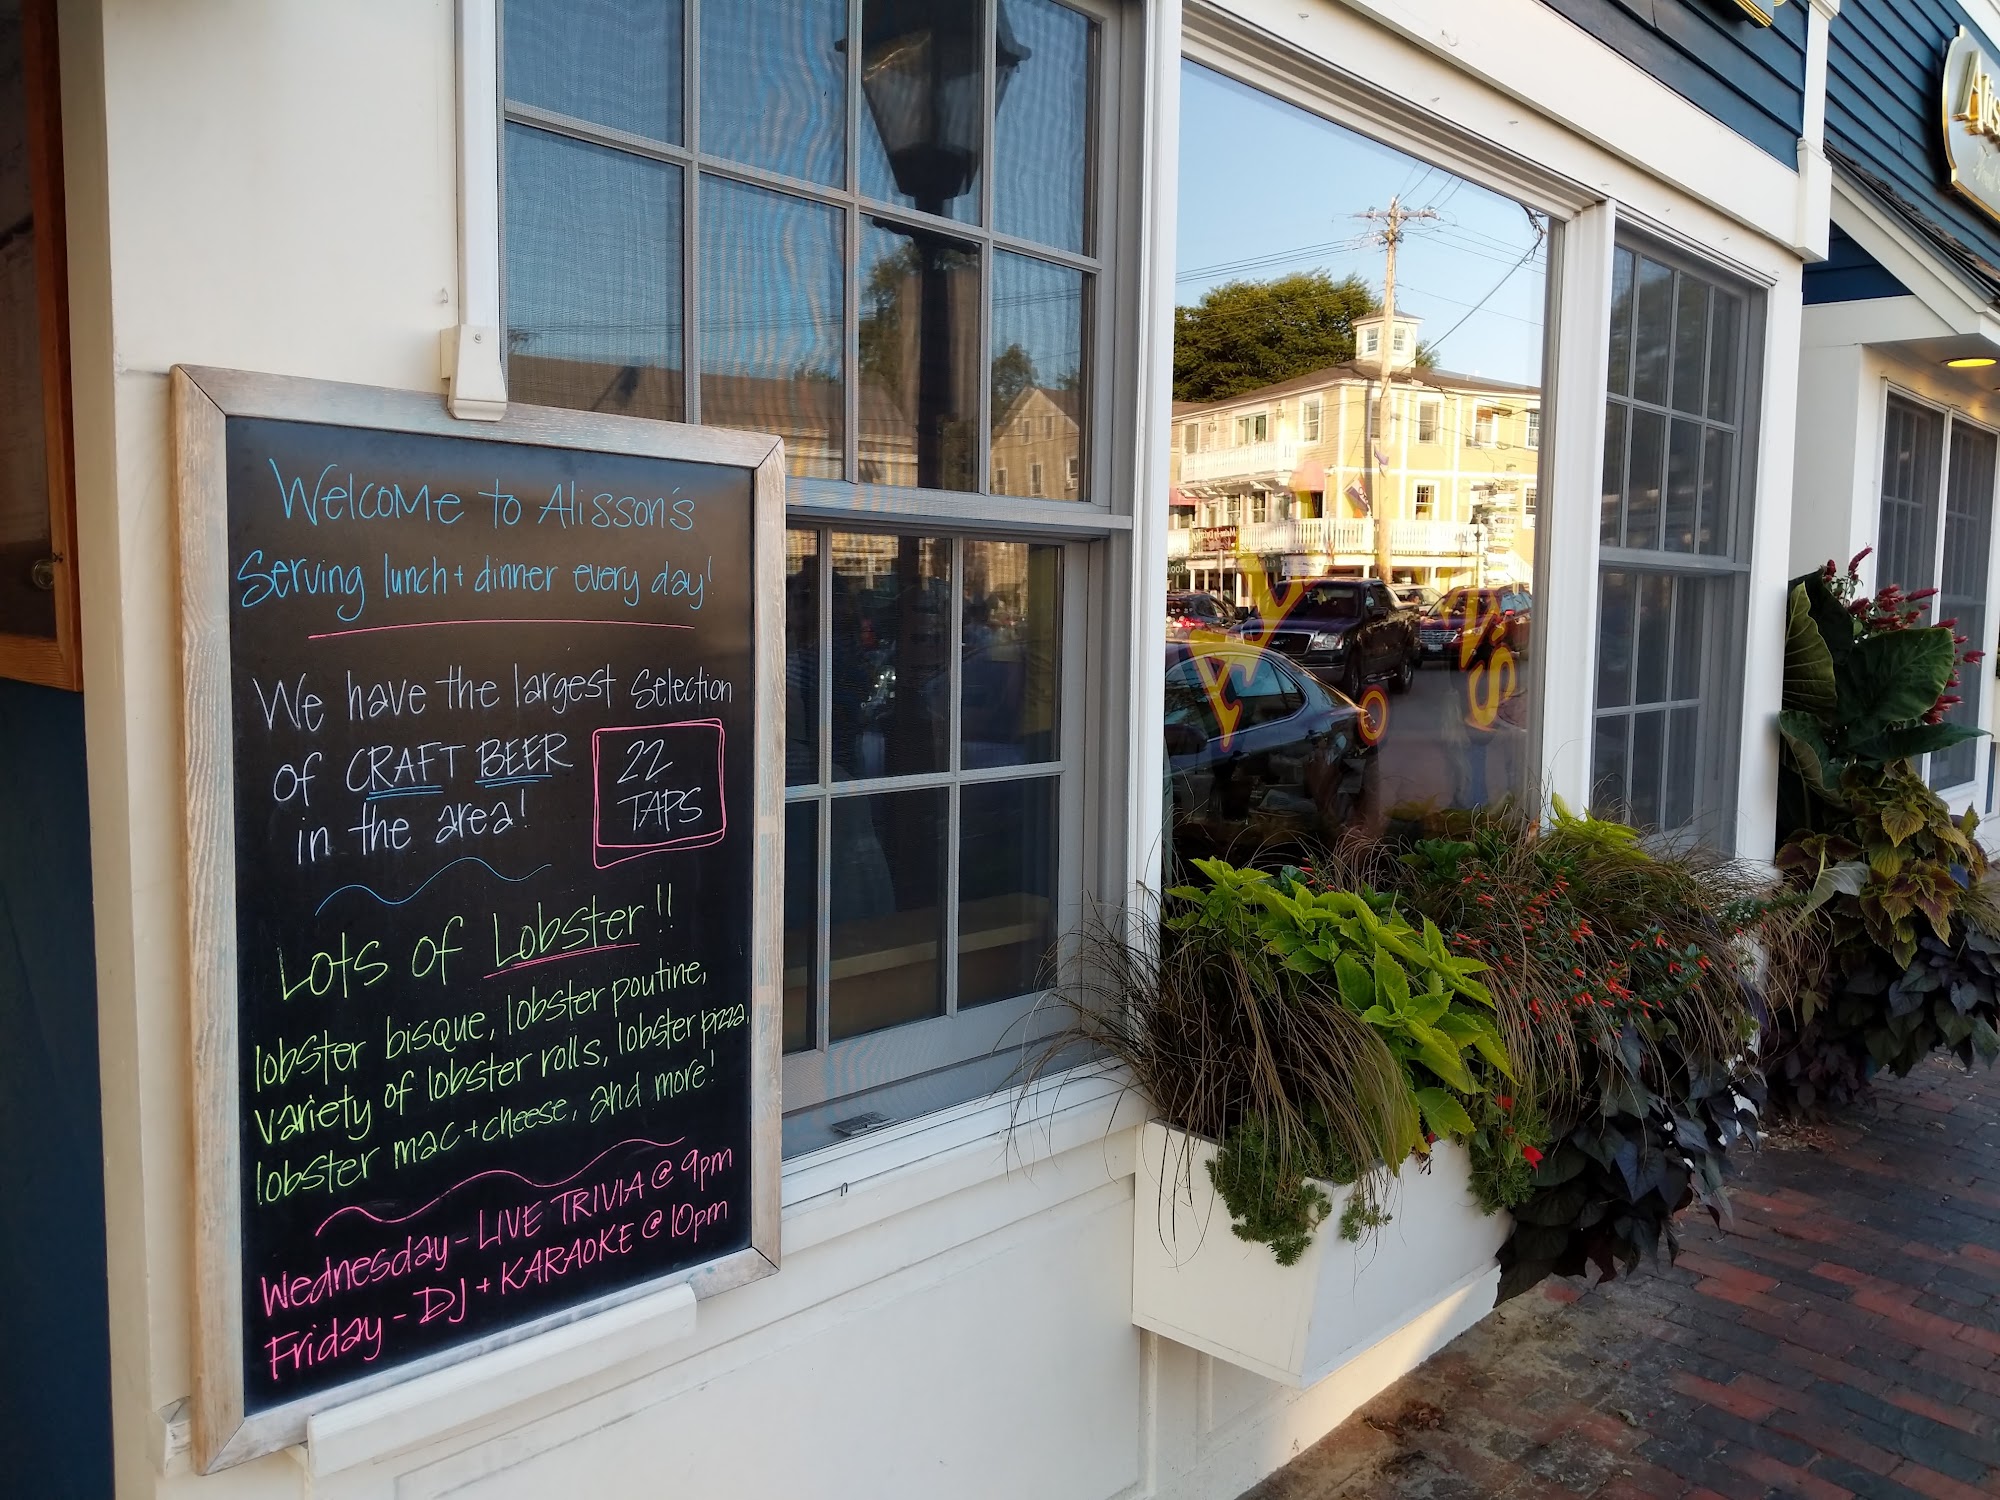 Welcome to Alisson's
Serving lunch + dinner every day!
We have the largest selection
of CRAFT BEER
in the area!
22
TAPS
Lots of Lobster!!
lobster bisque, lobster poutine,
variety of lobster rolls, lobster pizza,
lobster mac + cheese, and more!
Wednesday - LIVE TRIVIA @ 9pm
Friday - DJ + KARAOKE @ 10pm